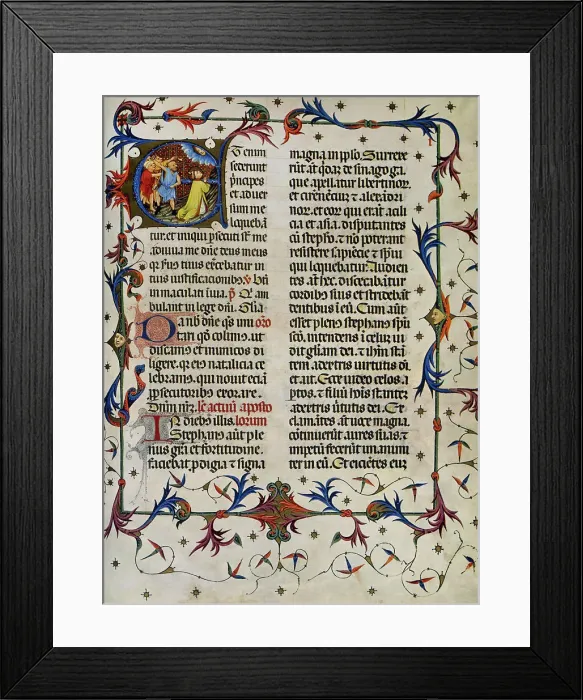 T enim
sederunt
pncipes
et aduer
sum me
loqueba
tur. et iniqui psecuti st me
adiuua me dne deus meus
qr suus tuus exercebatur in
tuis iustificationibus ps Bti
in maculati in uia. p Q am
bulant in lege dni. Glia
Da nob dne qs imi oro
tari qd colimus. ut
discamus et inimicos di
ligere. qr eius natalicia ce
lebramus. qui nouit eciam
p psecutoribz exorare.
Dnm nrm. Lc actuum aposto
In diebus illis. lorum
Stephanus aut ple
nus gra et fortitudine.
faciebat pdigia et signa
magna in pplo. Surrexe
rut at qdaz de sinagoga.
que apellatur libertinor.
et cirenensium et alexadri
nor. et eor qui erat a cili
cia et asia. disputantes
cu stepho. et no poterant
resistere sapiecie et spui
qui loquebatur. Audien
tes. at hec. dissecabatur
cordibs suis et stridebat
dentibus i eu. Cum aut
esset plenus stephanus spu
sco. intendens i celum. ui
dit gliam dei. et ihm stan
tem a dextris uirtutis di.
et ait. Ecce uideo celos a
ptos. et filiu hois stante
a dextris uirtutis dei. Ex
clamates. at uoce magna.
cotinuerut aures suas. et
impetu fecerut unanimi
ter in eu. Et eicietes eum